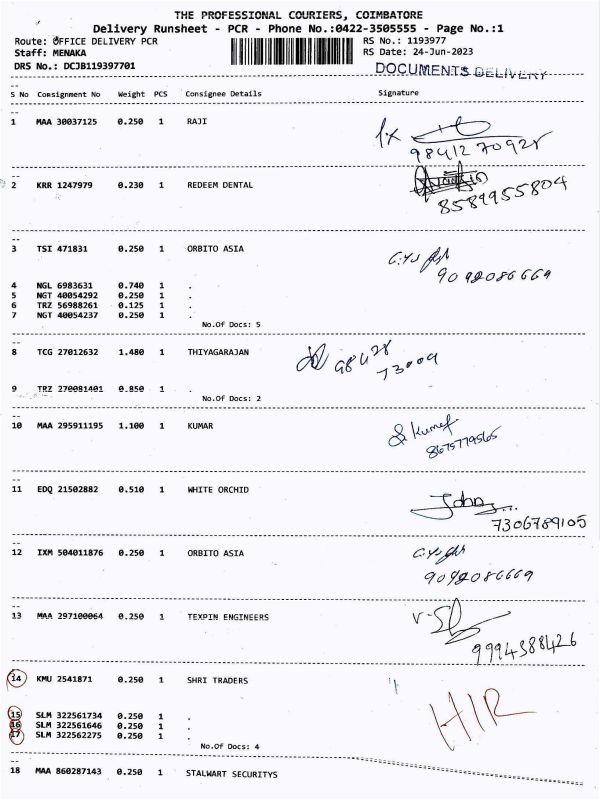 THE PROFESSIONAL COURIERS, COIMBATORE
Delivery Runsheet - PCR - Phone No.:0422-3505555 - Page No.:1
Route: OFFICE DELIVERY PCR RS No.: 1193977
Staff: MENAKA RS Date: 24-Jun-2023
DRS No.: DCJB119397701 DOCUMENTS DELIVERY
S No Consignment No Weight PCS Consignee Details Signature
1 MAA 30037125 0.250 1 RAJI
9841270928
2 KRR 1247979 0.230 1 REDEEM DENTAL
8589955804
3 TSI 471831 0.250 1 ORBITO ASIA
9092086669
4 NGL 6983631 0.740 1 .
5 NGT 40054292 0.250 1 .
6 TRZ 56988261 0.125 1 .
7 NGT 40054237 0.250 1 .
No.Of Docs: 5
8 TCG 27012632 1.480 1 THIYAGARAJAN 98428
73009
9 TRZ 270081401 0.850 1 .
No.Of Docs: 2
10 MAA 295911195 1.100 1 KUMAR Kumar
8675779565
11 EDQ 21502882 0.510 1 WHITE ORCHID John
7306789105
12 IXM 504011876 0.250 1 ORBITO ASIA
9092086669
13 MAA 297100064 0.250 1 TEXPIN ENGINEERS
9994388426
14 KMU 2541871 0.250 1 SHRI TRADERS
15 SLM 322561734 0.250 1 .
16 SLM 322561646 0.250 1 .
17 SLM 322562275 0.250 1 .
No.Of Docs: 4
18 MAA 860287143 0.250 1 STALWART SECURITYS